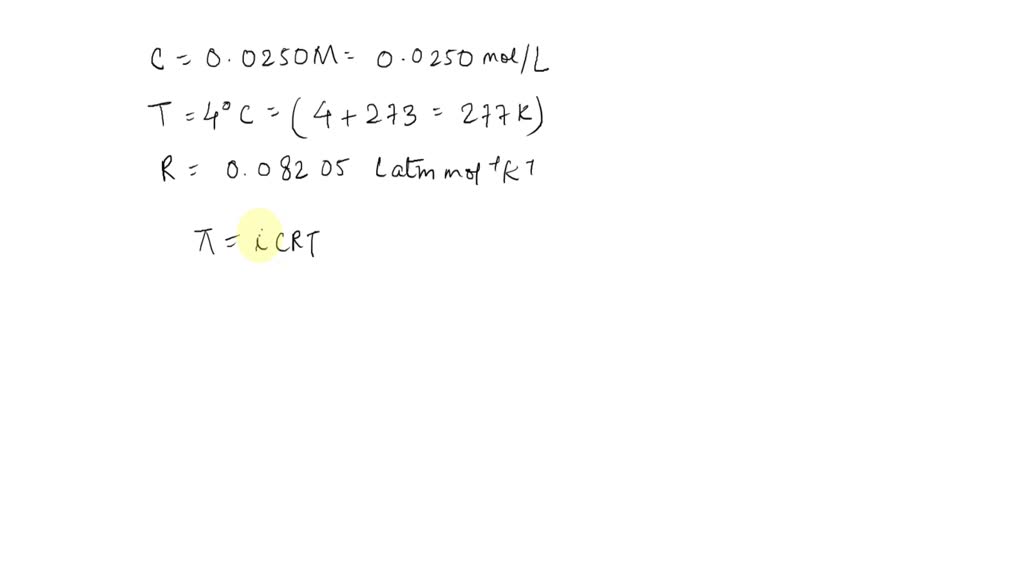 C = 0.0250M = 0.0250 mol/L
T = 4°C = (4 + 273 = 277K)
R = 0.08205 Latm mol⁻¹K⁻¹
π = iCRT